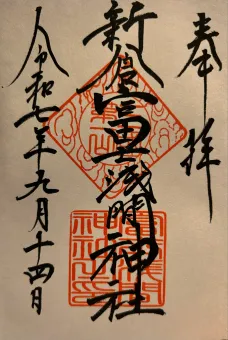 奉拝
新倉富士浅間神社
令和七年九月十四日